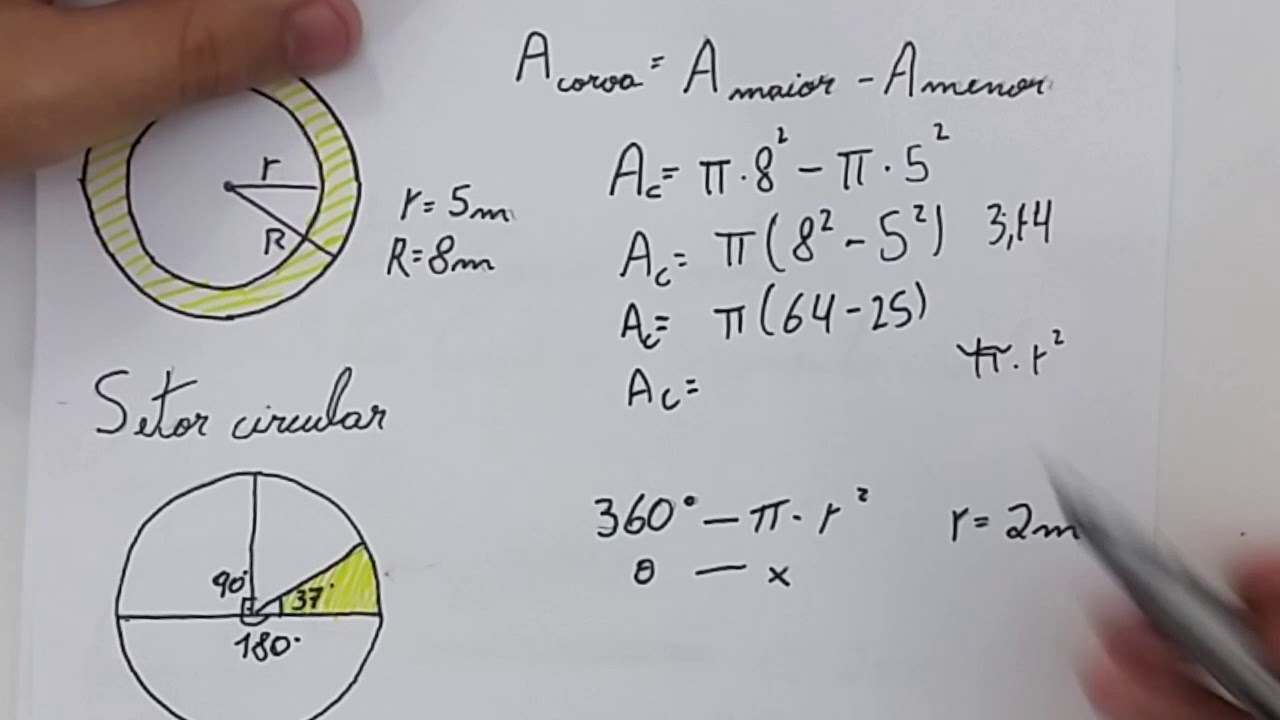 A coroa = A maior - A menor
Ac = π · 8² - π · 5²
Ac = π(8² - 5²) 3,14
Ac = π(64 - 25)
Ac =
π · r²
r
R
r = 5m
R = 8m
Setor circular
90°
37°
180°
360° — π · r²
θ — x
r = 2m